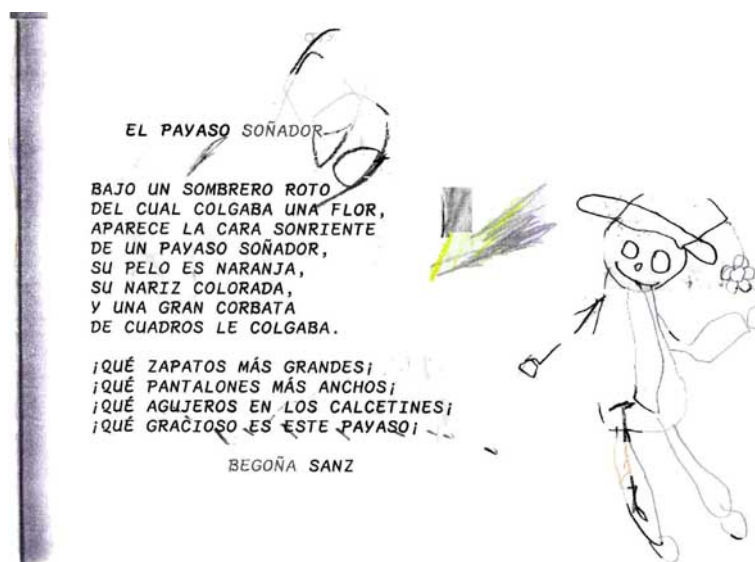 EL PAYASO SOÑADOR
BAJO UN SOMBRERO ROTO
DEL CUAL COLGABA UNA FLOR,
APARECE LA CARA SONRIENTE
DE UN PAYASO SOÑADOR,
SU PELO ES NARANJA,
SU NARIZ COLORADA,
Y UNA GRAN CORBATA
DE CUADROS LE COLGABA.
¡QUÉ ZAPATOS MÁS GRANDES¡
¡QUÉ PANTALONES MÁS ANCHOS¡
¡QUÉ AGUJEROS EN LOS CALCETINES¡
¡QUÉ GRACIOSO ES ESTE PAYASO¡
BEGOÑA SANZ